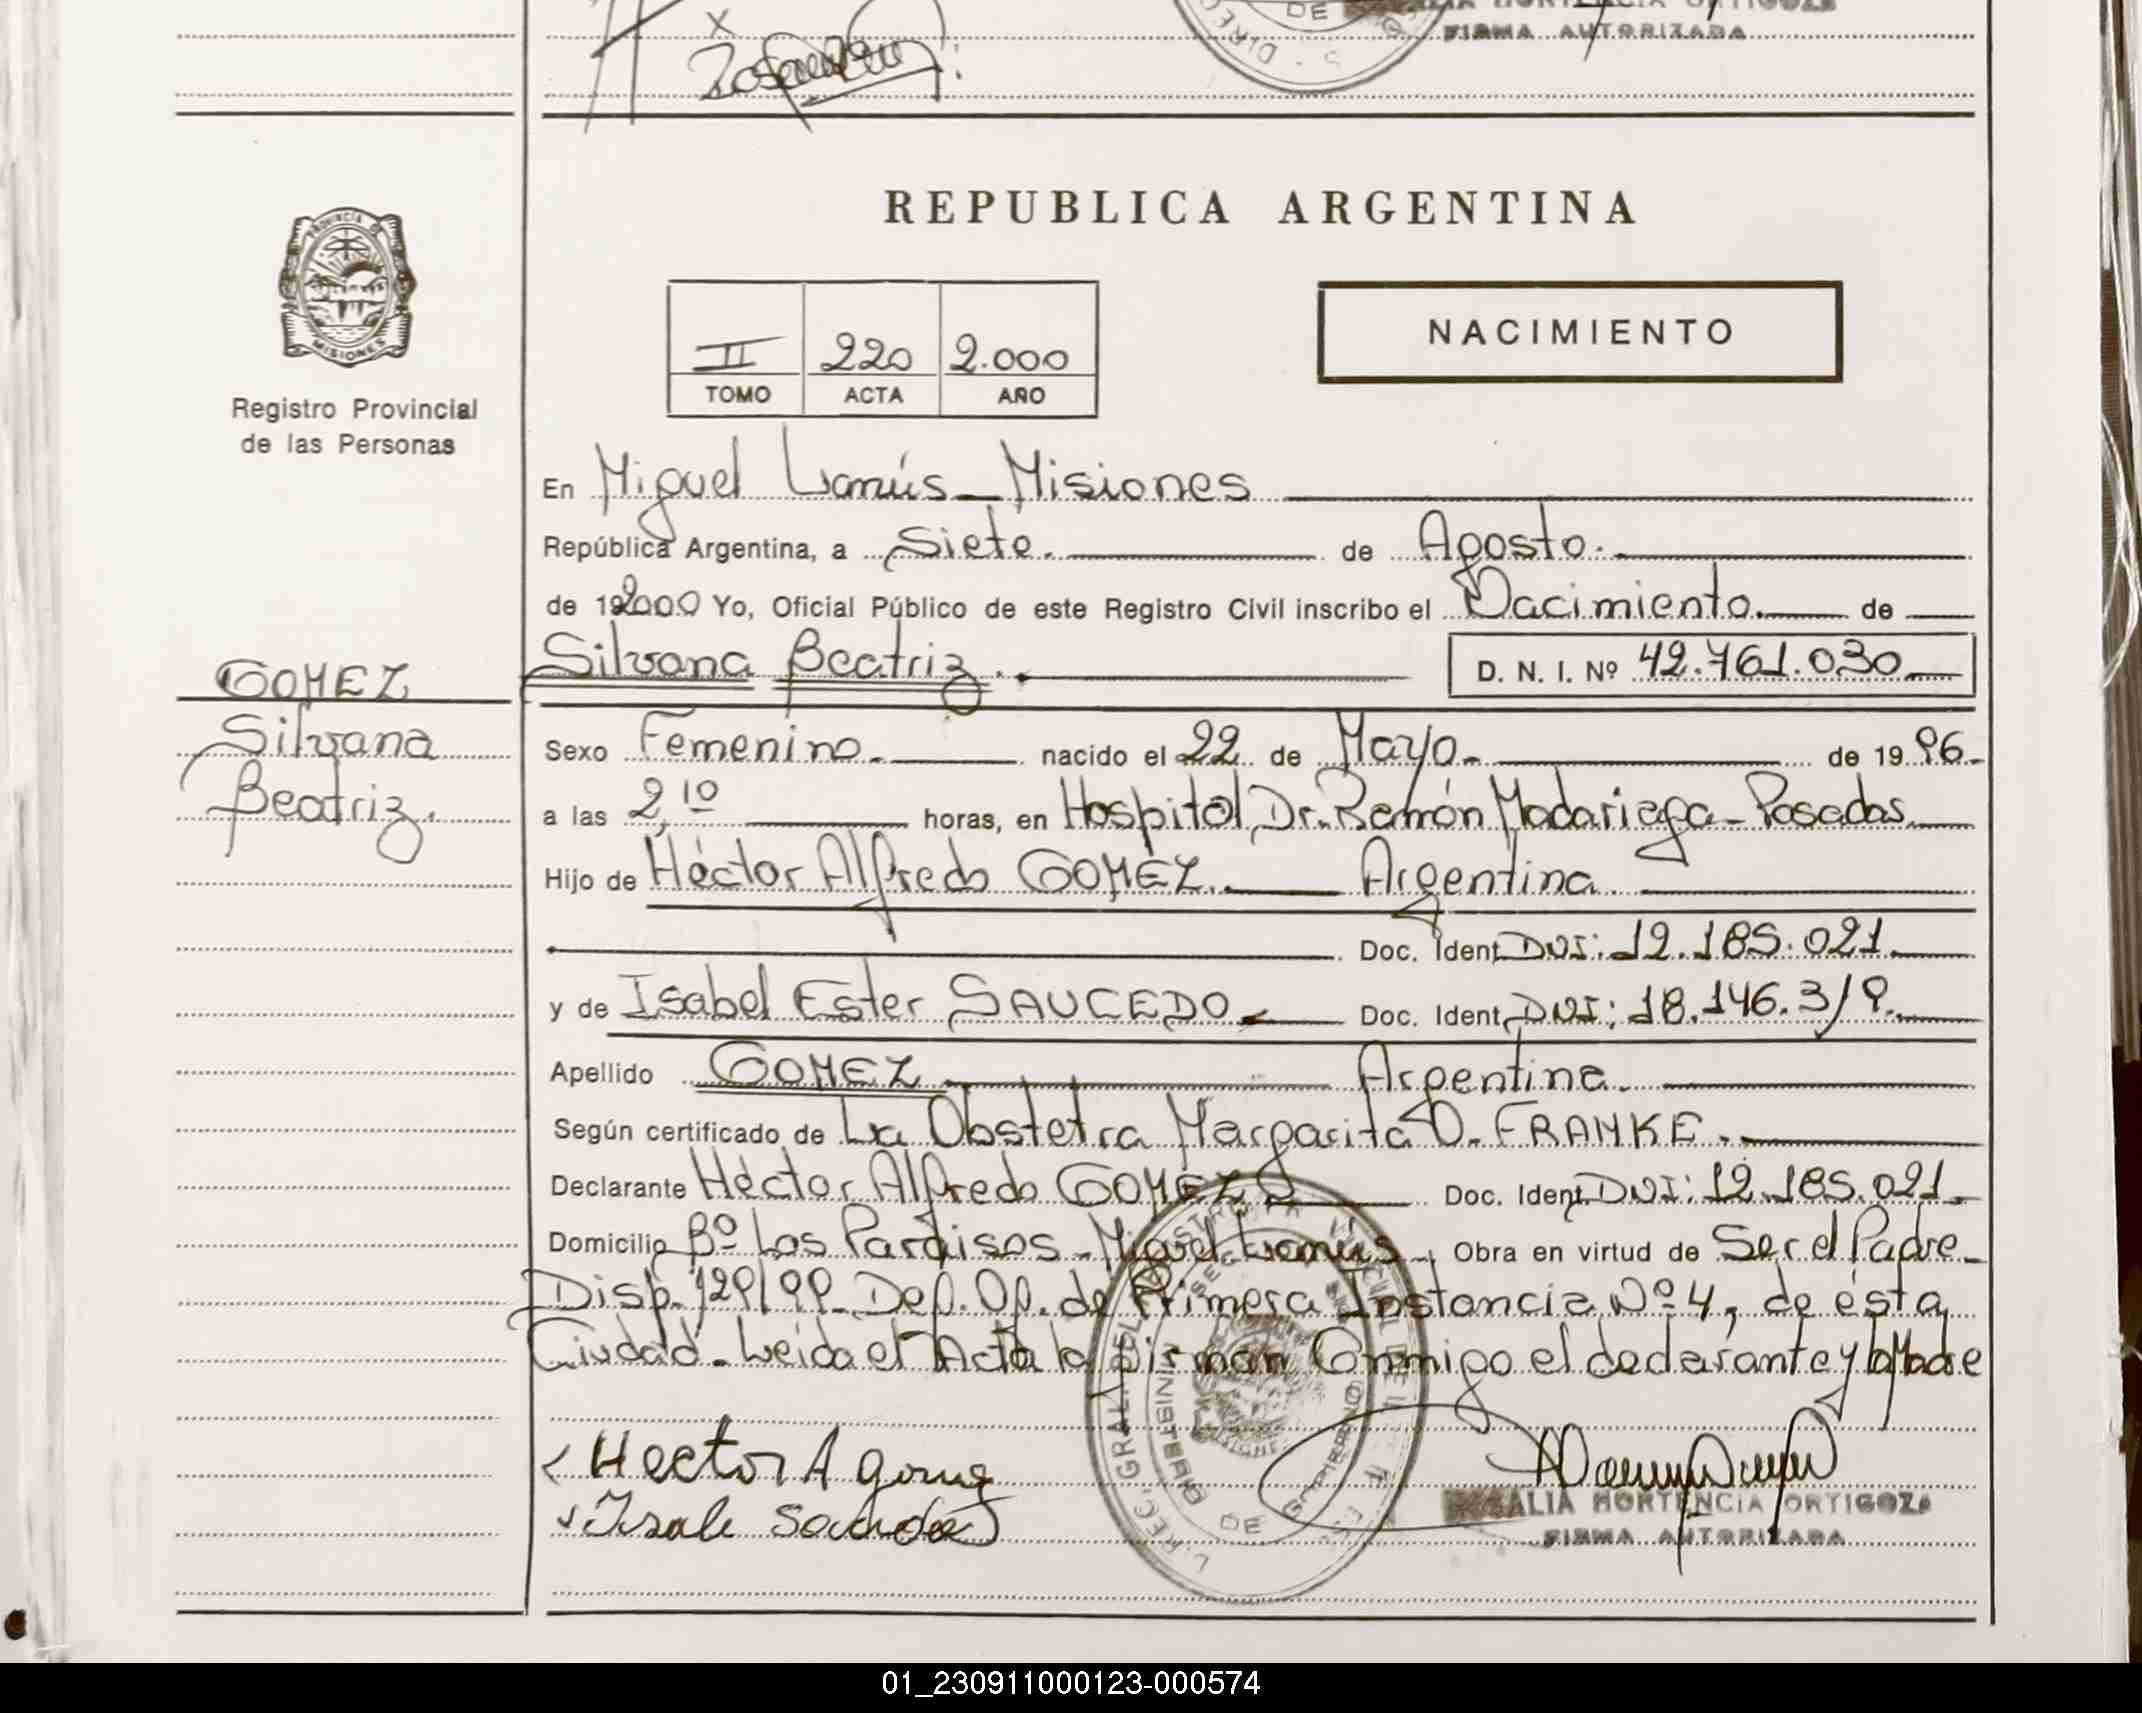 FIRMA AUTORIZADA
REPUBLICA ARGENTINA
PROVINCIA DE MISIONES
Registro Provincial
de las Personas
II 220 2.000
TOMO ACTA AÑO
NACIMIENTO
En Miguel Lanús - Misiones
República Argentina, a Siete. de Agosto.
de 192000 Yo, Oficial Público de este Registro Civil inscribo el Nacimiento. de
Silvana Beatriz. D. N. I. Nº 42.761.030
GOMEZ
Silvana
Beatriz.
Sexo Femenino. nacido el 22 de Mayo. de 19 96.
a las 2,10 horas, en Hospital Dr. Ramón Madariaga - Posadas
Hijo de Héctor Alfredo GOMEZ. Argentina
Doc. Ident. DNI: 12.185.021
y de Isabel Ester SAUCEDO. Doc. Ident. DNI: 18.146.319.
Apellido GOMEZ Argentina.
Según certificado de La Obstetra Margarita O. FRANKE.
Declarante Héctor Alfredo GOMEZ Doc. Ident. DNI: 12.185.021.
Domicilio Bº Los Paraisos - Miguel Lanús, Obra en virtud de Ser el Padre -
Disp. 129/99 - Def. Of. de Primera Instancia Nº 4, de ésta
Ciudad. Leída el Acta la firman Conmigo el declarante y la Madre
Hector A gomez
ROSALIA HORTENCIA ORTIGOZA
FIRMA AUTORIZADA
01_230911000123-000574